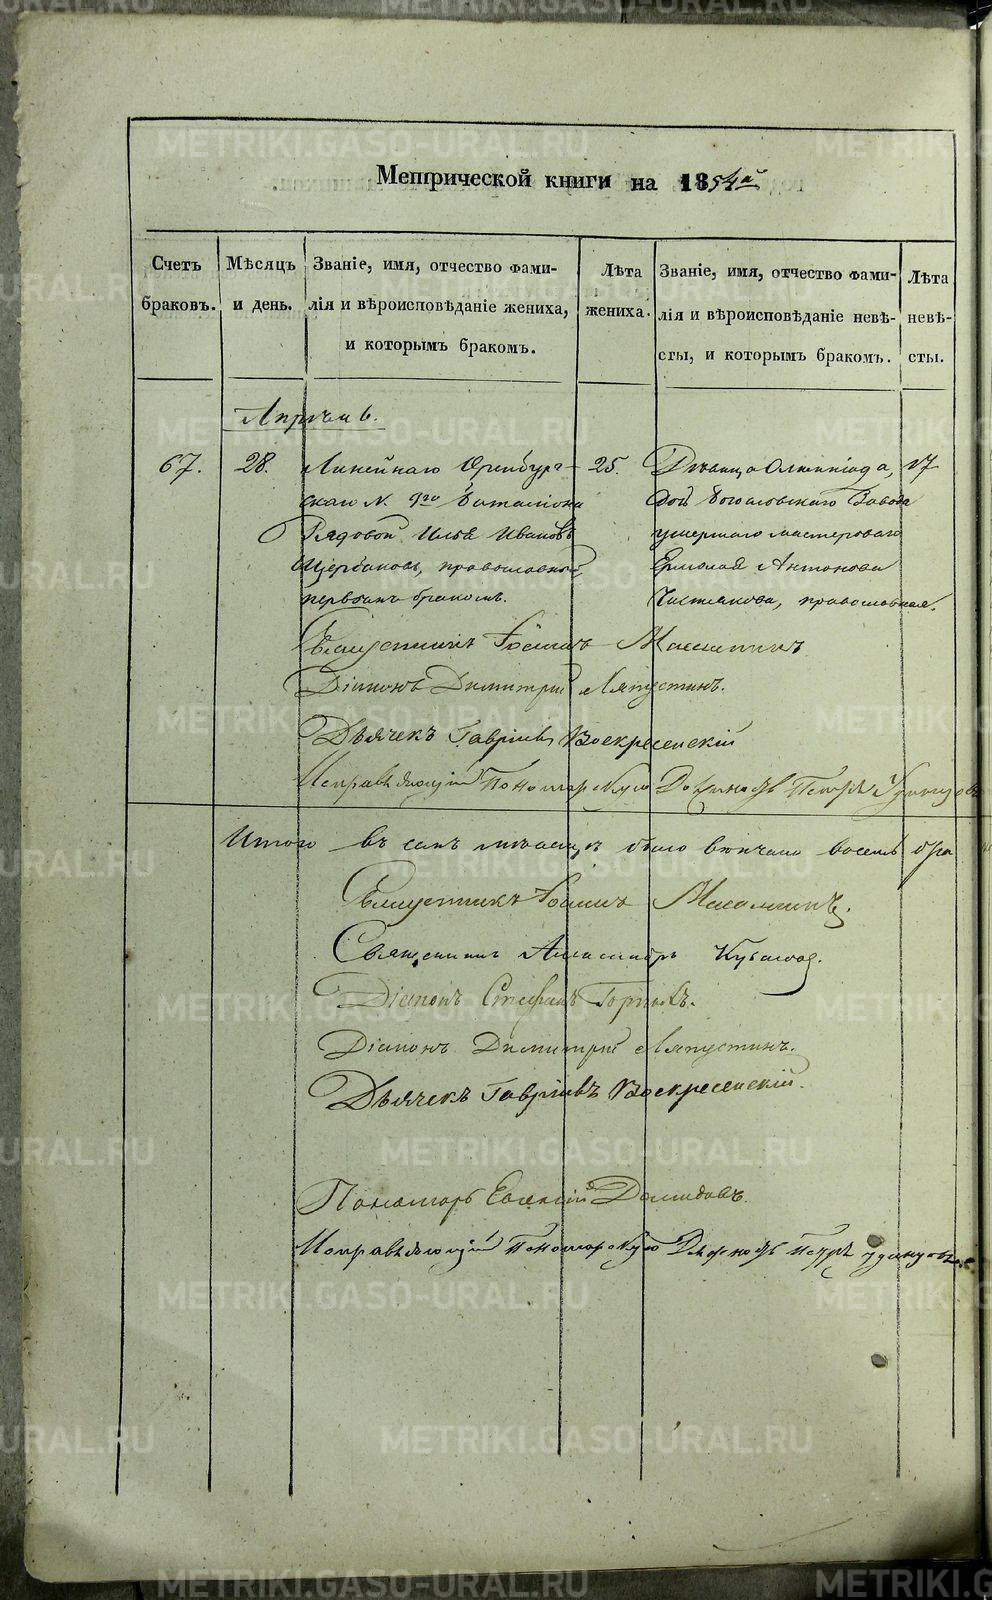 Метрической книги на 1854й
Счетъ браковъ.
Мѣсяцъ и день.
Званіе, имя, отчество фами-
лія и вѣроисповѣданіе жениха,
и которымъ бракомъ.
Лѣта жениха.
Званіе, имя, отчество фами-
лія и вѣроисповѣданіе невѣ-
сты, и которымъ бракомъ.
Лѣта невѣ-
сты.
Апрѣль.
67.
28.
Линейнаго Оренбург-
скаго № 9го баталіона
Рядовой Илья Ивановъ
Щербаковъ, православный,
первымъ бракомъ.
25.
Дѣвица Олимпіада,
дочь Богословскаго Завода
умершаго мастероваго
Ермолая Антонова
Чистякова, православная.
17
Священникъ Іоаннъ
Діаконъ Димитрій Ляпустинъ.
Дьячекъ Гавріилъ Воскресенскій
Исправляющій Пономарскую Должность Петръ
Итого въ семъ мѣсяцѣ было вѣнчано восемь бра
Священникъ Іоаннъ
Священникъ Александръ
Діаконъ Стефанъ
Діаконъ Димитрій Ляпустинъ.
Дьячекъ Гавріилъ Воскресенскій.
Пономарь Евгеній Демидовъ.
Исправляющій Пономарскую Должность Петръ
METRIKI.GASO-URAL.RU